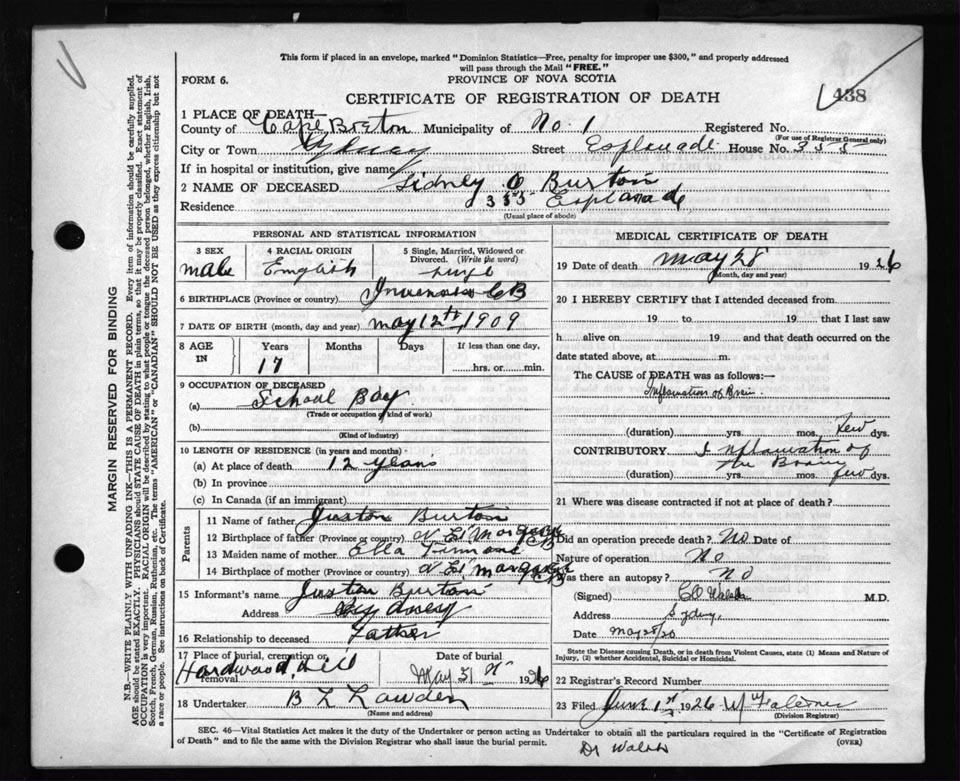 This form if placed in an envelope, marked "Dominion Statistics—Free, penalty for improper use $300," and properly addressed
will pass through the Mail "FREE."
FORM 6.
PROVINCE OF NOVA SCOTIA
CERTIFICATE OF REGISTRATION OF DEATH
438
1 PLACE OF DEATH—
County of Cape Breton Municipality of No. 1 Registered No.
(For use of Registrar General only)
City or Town Sydney Street Esplanade House No. 355
If in hospital or institution, give name
2 NAME OF DECEASED Sidney O Burton
Residence 355 Esplanade
(Usual place of abode)
PERSONAL AND STATISTICAL INFORMATION
3 SEX male
4 RACIAL ORIGIN English
5 Single, Married, Widowed or Divorced. (Write the word)
6 BIRTHPLACE (Province or country) CB
7 DATE OF BIRTH (month, day and year) May 12th, 1909
8 AGE IN Years 17 Months Days If less than one day, hrs. or min.
9 OCCUPATION OF DECEASED
(a) School Boy
(Trade or occupation of kind of work)
(b)
(Kind of industry)
10 LENGTH OF RESIDENCE (in years and months)
(a) At place of death 12 years
(b) In province
(c) In Canada (if an immigrant)
Parents
11 Name of father Juston Burton
12 Birthplace of father (Province or country) N E Margaree CB
13 Maiden name of mother Ella
14 Birthplace of mother (Province or country) N E Margaree CB
15 Informant's name Juston Burton
Address Sydney
16 Relationship to deceased Father
17 Place of burial, cremation or removal Hardwood Hill
Date of burial May 31st 1926
18 Undertaker B L Lowden
(Name and address)
MEDICAL CERTIFICATE OF DEATH
19 Date of death May 28 1926
(Month, day and year)
20 I HEREBY CERTIFY that I attended deceased from
19 to 19 that I last saw
h alive on 19 and that death occurred on the
date stated above, at m.
The CAUSE of DEATH was as follows:—
Inflamation of Brain.
(duration) yrs. mos. few dys.
CONTRIBUTORY Inflamation of
the Brain
(duration) yrs. mos. few dys.
21 Where was disease contracted if not at place of death?
Did an operation precede death? No Date of
Nature of operation No
Was there an autopsy? No
(Signed) M.D.
Address Sydney,
Date May 28/26
State the Disease causing Death, or in death from Violent Causes, state (1) Means and Nature of
Injury, (2) whether Accidental, Suicidal or Homicidal.
22 Registrar's Record Number
23 Filed June 1st 1926
(Division Registrar)
SEC. 46—Vital Statistics Act makes it the duty of the Undertaker or person acting as Undertaker to obtain all the particulars required in the "Certificate of Registration
of Death" and to file the same with the Division Registrar who shall issue the burial permit.
(OVER)
Dr Walsh
MARGIN RESERVED FOR BINDING
N.B.—WRITE PLAINLY WITH UNFADING INK—THIS IS A PERMANENT RECORD. Every item of information should be carefully supplied.
AGE should be stated EXACTLY. PHYSICIANS should STATE CAUSE OF DEATH in plain terms, so that it may be properly classified. Exact statement of
OCCUPATION is very important. RACIAL ORIGIN will be described by stating to what people or tongue the deceased person belonged, whether English, Irish,
Scotch, French, German, Russian, Ruthenian, etc. The terms "AMERICAN" or "CANADIAN" SHOULD NOT BE USED as they express citizenship but not
a race or people. See instructions on back of Certificate.